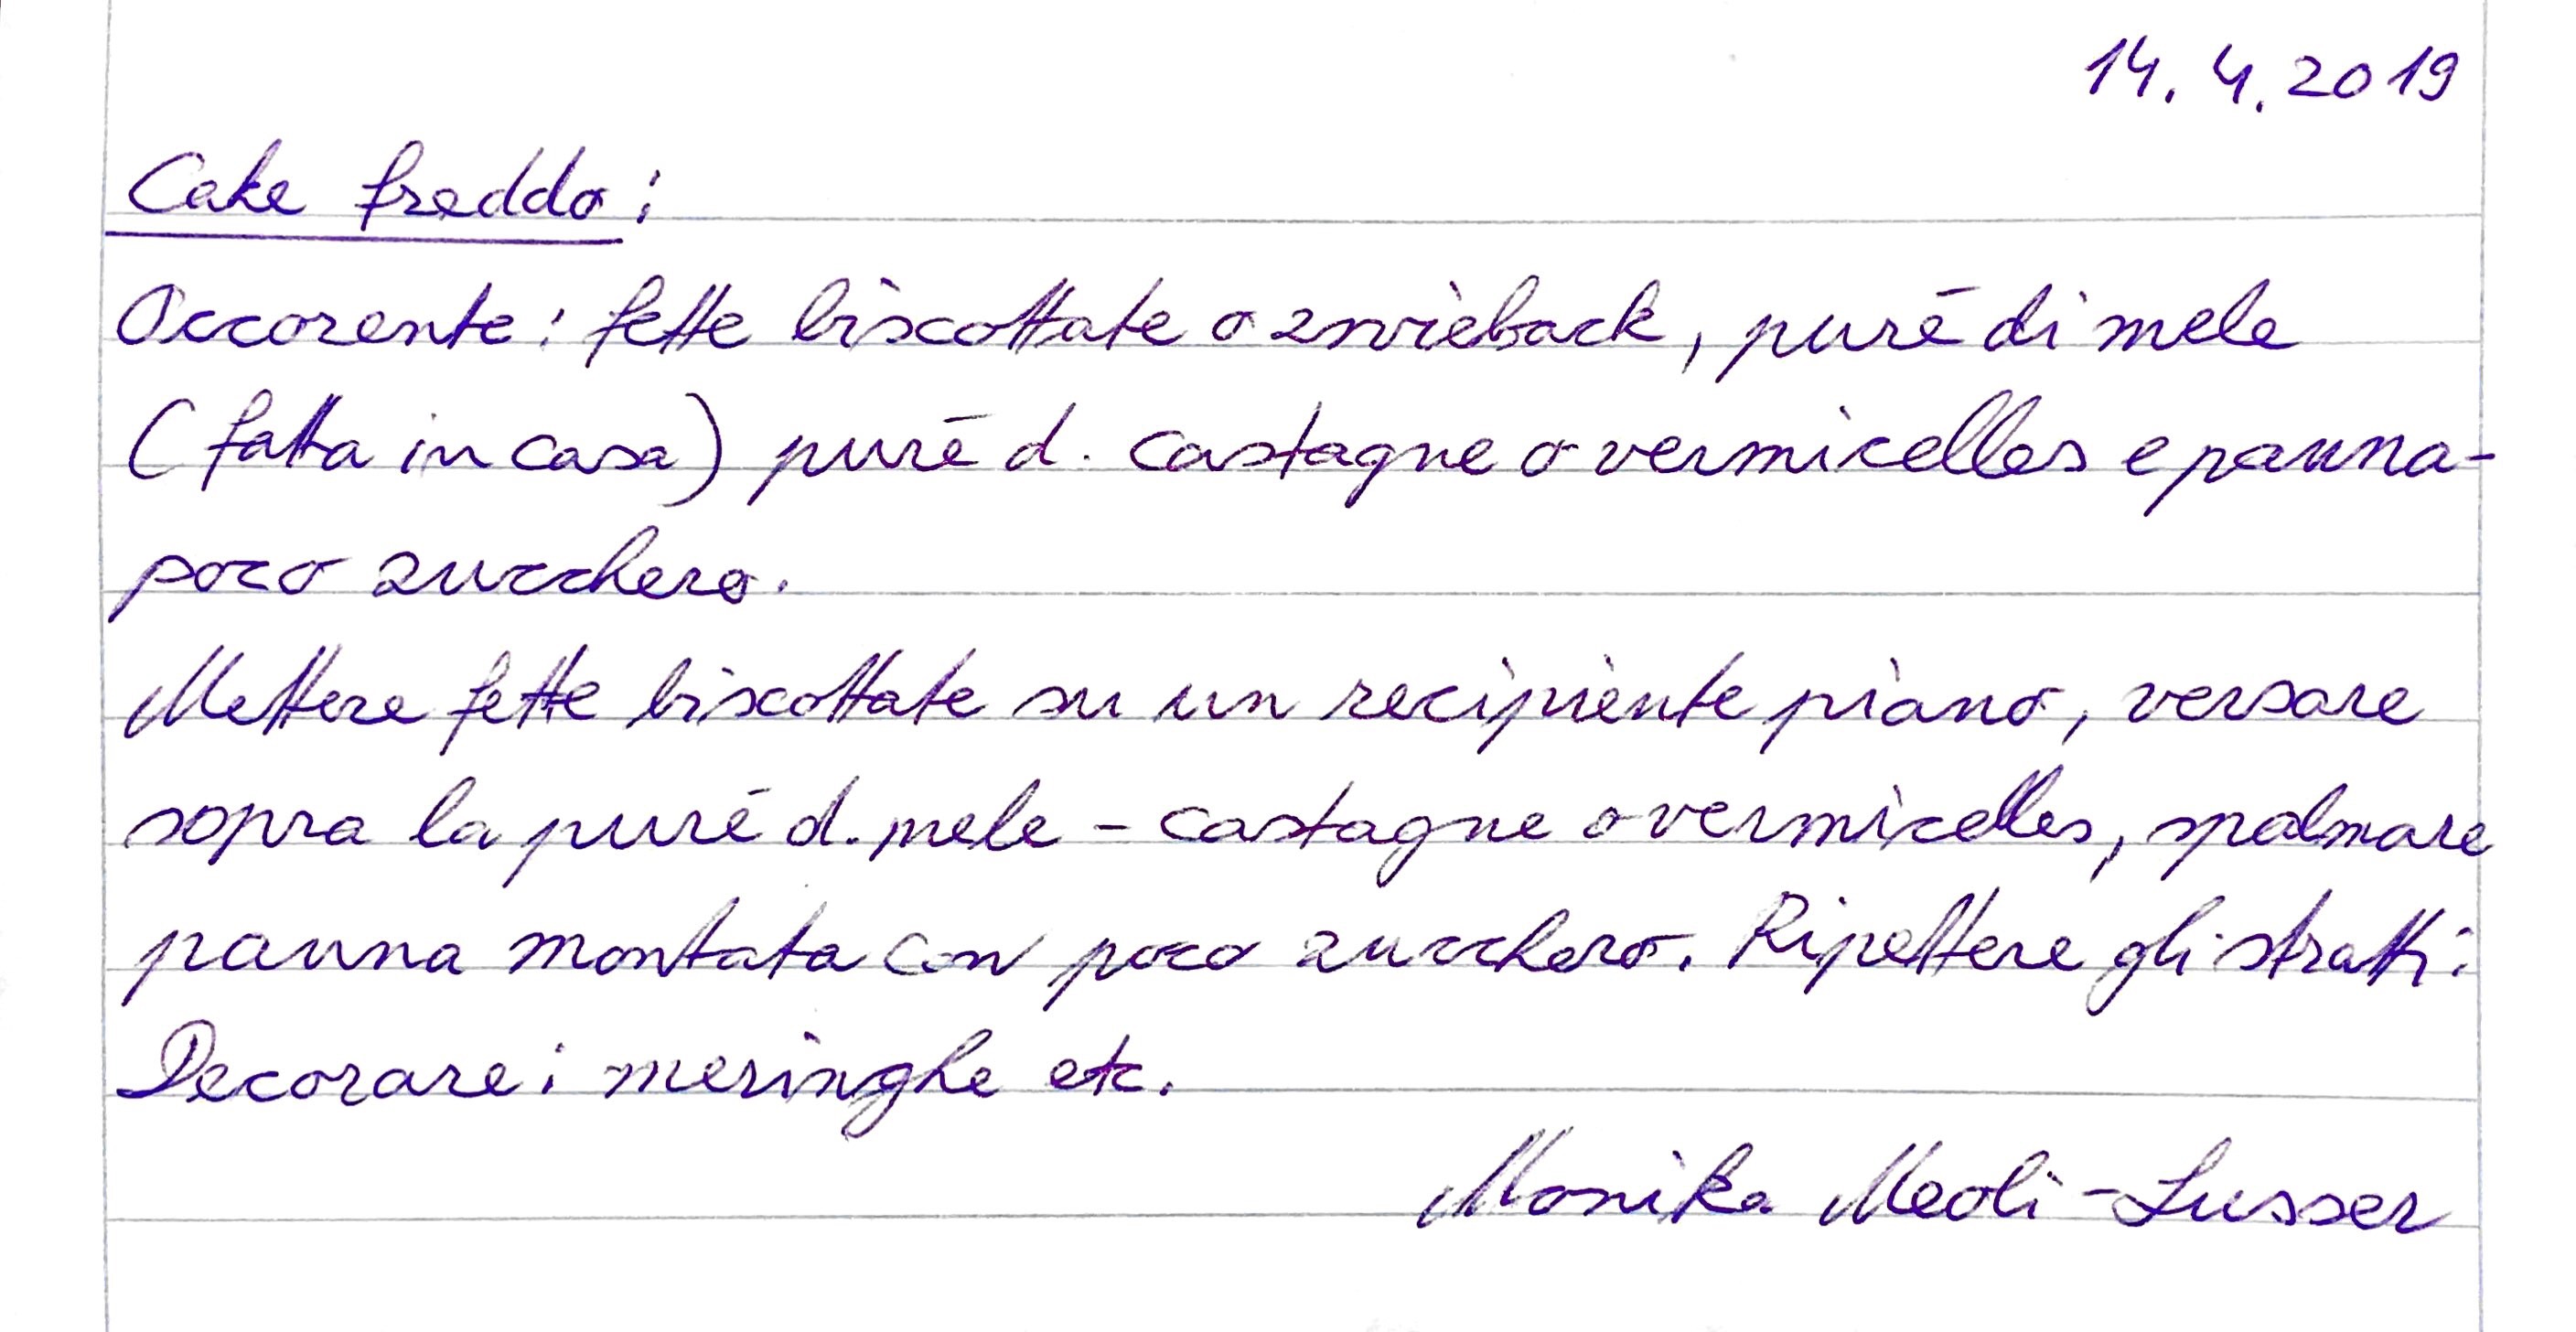 14.4.2019
Cake freddo:
Occorente: fette biscottate o zwieback, puré di mele
(fatta in casa) puré d. castagne o vermicelles e panna-
poco zucchero.
Mettere fette biscottate su un recipiente piano, versare
sopra la puré d. mele - castagne o vermicelles, spalmare
panna montata con poco zucchero. Ripettere gli stratti:
Decorare: meringhe etc.
Monika Meoli-Lusser